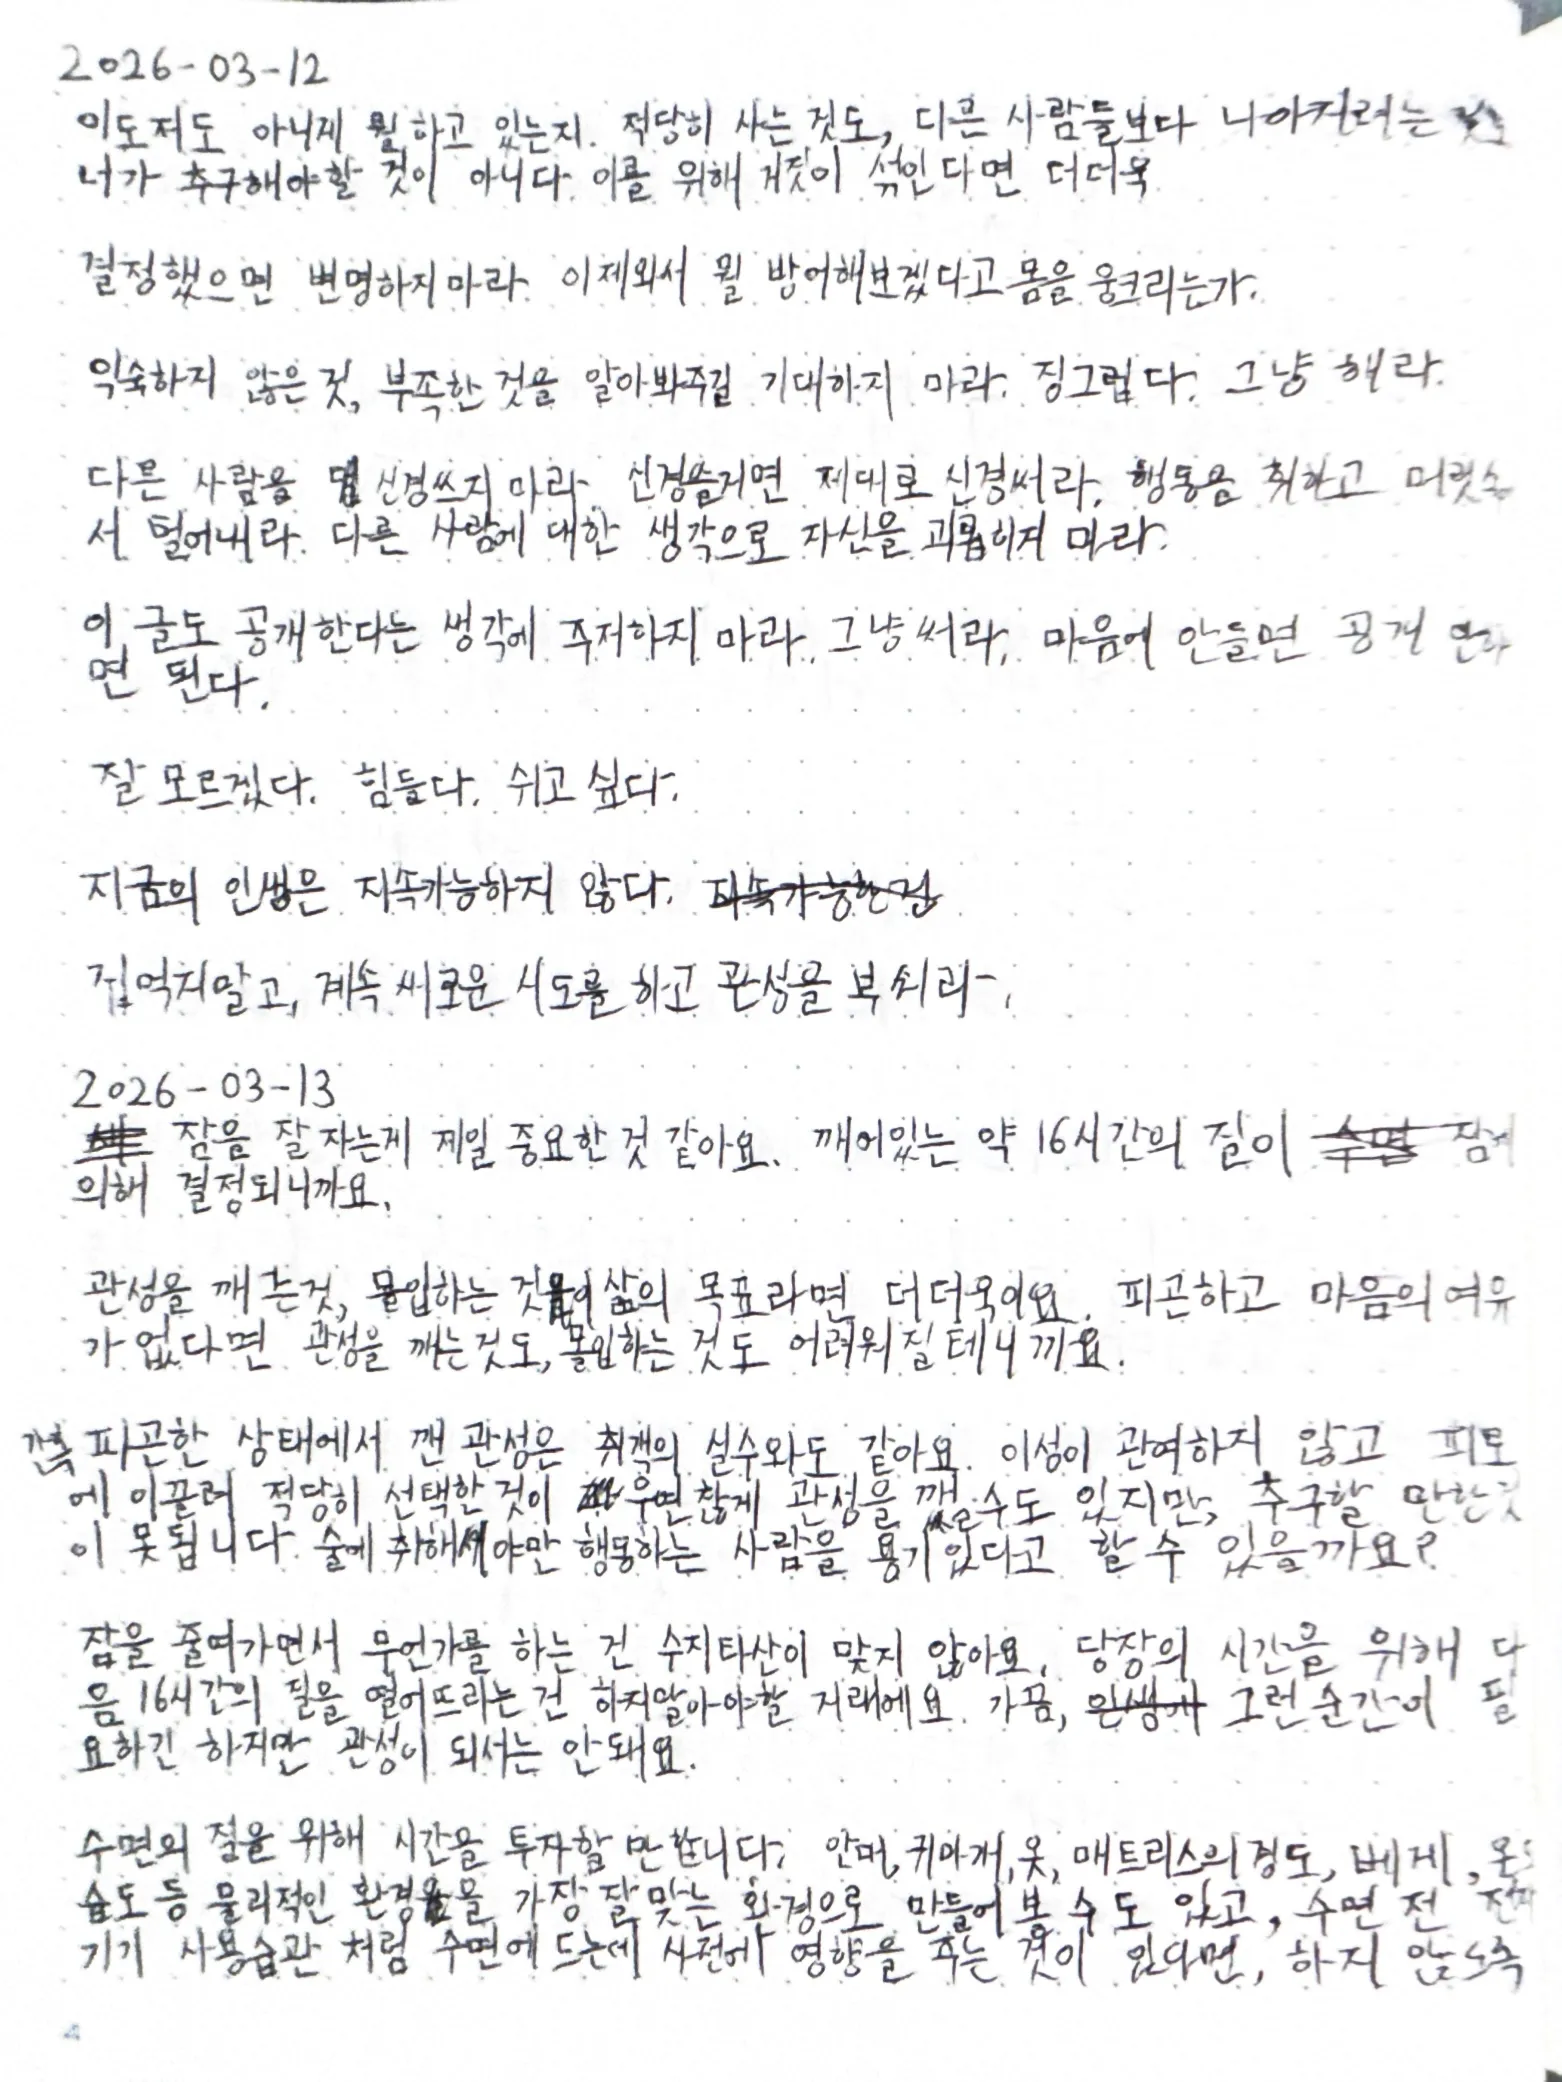 2026-03-12
이도저도 아니게 뭘 하고 있는지. 적당히 사는 것도, 다른 사람들보다 나아지려는
너가 추구해야할 것이 아니다. 이를 위해 거짓이 섞인다면 더더욱
결정했으면 변명하지마라. 이제와서 뭘 방어해보겠다고 몸을 웅크리는가.
익숙하지 않은 것, 부족한 것을 알아봐주길 기대하지 마라. 징그럽다. 그냥 해라.
다른 사람을 신경쓰지 마라. 신경쓸거면 제대로 신경써라. 행동을 취하고 머릿속
서 털어내라. 다른 사람에 대한 생각으로 자신을 괴롭히지 마라.
이 글도 공개한다는 생각에 주저하지 마라. 그냥 써라. 마음에 안들면 공개 안하
면 된다.
잘 모르겠다. 힘들다. 쉬고 싶다.
지금의 인생은 지속가능하지 않다. 지속가능한 건
겁먹지말고, 계속 새로운 시도를 하고 관성을 부숴라.
2026-03-13
잠을 잘 자는게 제일 중요한 것 같아요. 깨어있는 약 16시간의 질이 수면 잠에
의해 결정되니까요.
관성을 깨는것, 몰입하는 것이 삶의 목표라면 더더욱이요. 피곤하고 마음의 여유
가 없다면 관성을 깨는것도, 몰입하는 것도 어려워질테니까요.
피곤한 상태에서 깬 관성은 취객의 실수와도 같아요. 이성이 관여하지 않고 피로
에 이끌려 적당히 선택한 것이 우연찮게 관성을 깼을수도 있지만, 추구할 만한 것
이 못됩니다. 술에 취해서야만 행동하는 사람을 용기있다고 할 수 있을까요?
잠을 줄여가면서 무언가를 하는 건 수지타산이 맞지 않아요. 당장의 시간을 위해 다
음 16시간의 질을 떨어뜨리는 건 하지말아야할 거래에요. 가끔, 인생에 그런 순간이 필
요하긴 하지만 관성이 되서는 안돼요.
수면의 질을 위해 시간을 투자할 만 합니다. 안대, 귀마개, 옷, 매트리스의 경도, 베게, 온도
습도 등 물리적인 환경을 가장 잘 맞는 환경으로 만들어 볼 수도 있고, 수면 전 전자
기기 사용습관 처럼 수면에 드는데 사전에 영향을 주는 것이 있다면, 하지 않도록
4